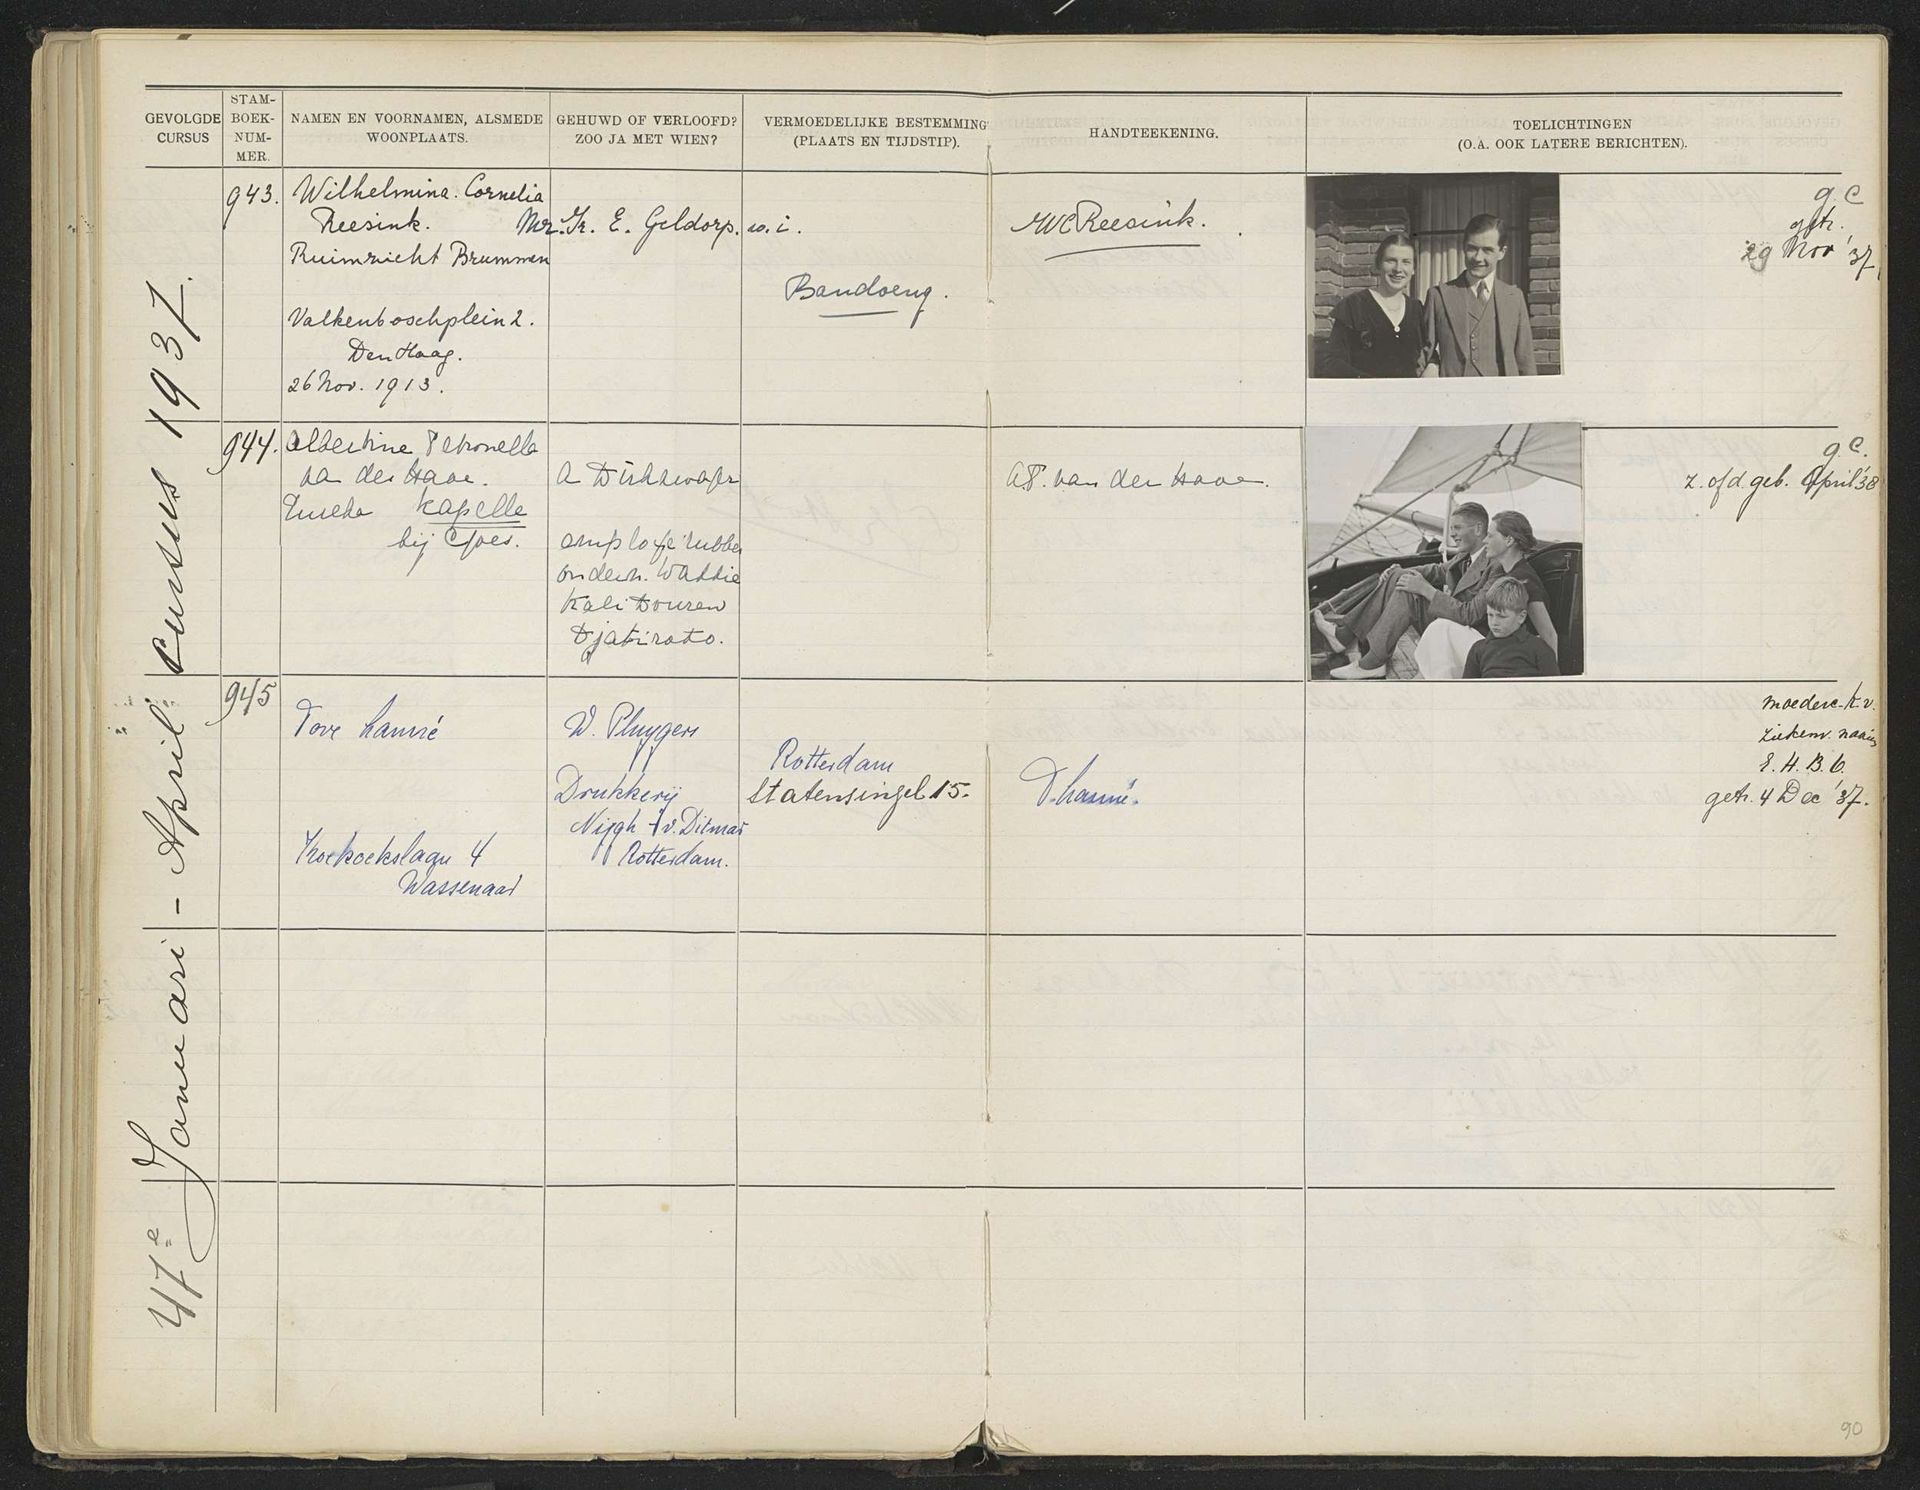 GEVOLGDE CURSUS
STAM-BOEK-NUM-MER.
NAMEN EN VOORNAMEN, ALSMEDE WOONPLAATS.
GEHUWD OF VERLOOFD? ZOO JA MET WIEN?
VERMOEDELIJKE BESTEMMING (PLAATS EN TIJDSTIP).
HANDTEEKENING.
TOELICHTINGEN
(O.A. OOK LATERE BERICHTEN).
47e Januari - April cursus 1937.
943.
Wilhelmina. Cornelia
Reesink.
Ruimzicht Brummen
Valkenboschplein 2.
Den Haag.
26 Nov. 1913.
Mr. Ir. E. Geldorp. w.i.
Bandoeng.
WC Reesink.
g.C
getr.
29 Nov '37
944.
Albertine Petronella
van der Have.
Kapelle
bij Goes.
A Dirkzwager
employé rubber
ondern.
Kali Douren
Djatiroto.
A.P. van der Have.
g.C.
z. of d. geb. April '38
945
Tove
W. Pluygers
Drukkerij
Nijgh + v. Ditmar
Rotterdam.
Koekoekslaan 4
Wassenaar
Rotterdam
Statensingel 15.
moederc. k.v.
ziekenv. naaien
E.H.B.O.
getr. 4 Dec '37.
90